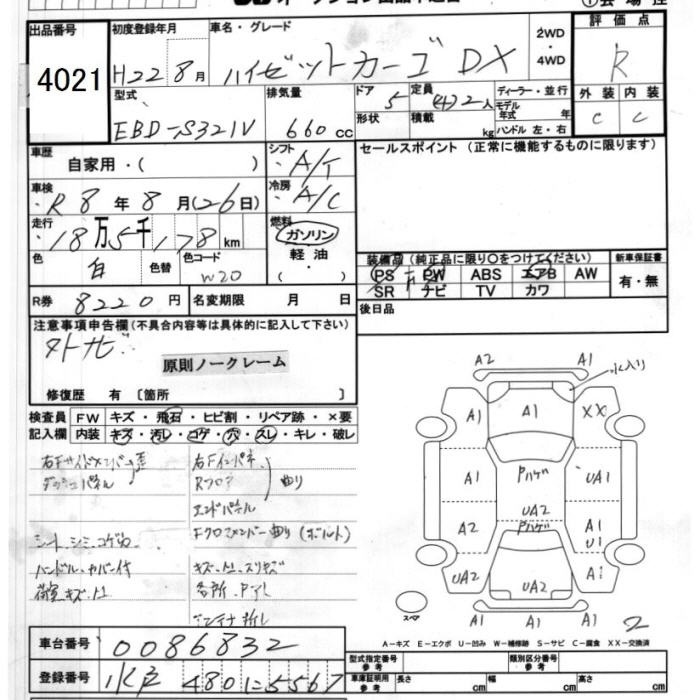 出品番号
4021
初度登録年月
H22 8月
車名・グレード
ハイゼットカーゴ DX
2WD
・
4WD
評価点
R
型式
EBD-S321V
排気量
660 cc
ドア
5
形状
定員
(4)2人
積載
kg
ディーラー・並行
モデル年式 年
ハンドル 左・右
外装 内装
C C
車歴
自家用・( )
シフト
A/T
セールスポイント(正常に機能するものに限ります)
車検
R8年8月(26日)
冷房
A/C
走行
18万5千178km
燃料
ガソリン
軽油
・( )
色
白
色替
色コード
W20
装備品(純正品に限り○をつけてください)
PS PW ABS エアB AW
SR ナビ TV カワ
新車保証書
有・無
R券 8220円
名変期限 月 日
後日品
注意事項申告欄(不具合内容等は具体的に記入して下さい)
外ナビ
原則ノークレーム
修復歴 有〔箇所 〕
検査員記入欄
FW キズ・飛石・ヒビ割・リペア跡・×要
内装 キズ・汚レ・コゲ・穴・スレ・キレ・破レ
右Fサイドメンバー歪
ダッシュパネル
右Fインパネ
Rフロア
エンドパネル
曲り
Fクロスメンバー曲り(ボルト)
シート、シミ、コゲ穴
ハンドル・カバー付
荷室キズ・凹
キズ・凹・スリキズ
各所、P、アレ
アンテナ折レ
A2 A1 水入り
A1 A1 XX
A1 Pハゲ UA1
UA2
A2 Pハゲ A1
U1
UA2 UA2 A1
スペア
A1 A1
2
A-キズ E-エクボ U-凹み W-補修跡 S-サビ C-腐食 XX-交換済
車台番号 0086832
登録番号 水戸 480 に 5567
型式指定番号
参考
類別区分番号
参考
車庫証明用
参考
長さ cm
幅 cm
高さ cm